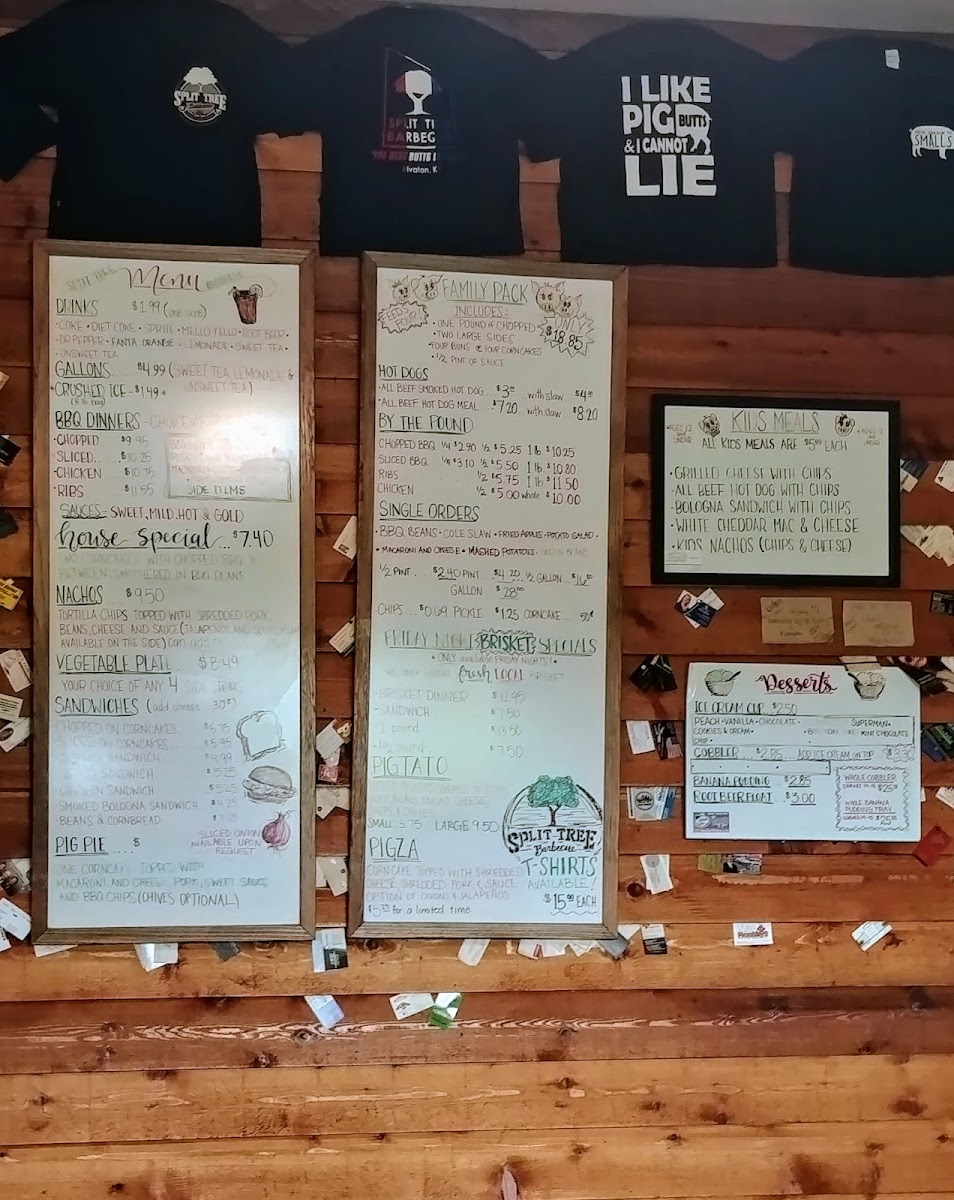 SPLIT TREE
Barbecue
SPLIT T
BARBE
lvaton, K
I LIKE
PIG BUTTS
& I CANNOT
LIE
SMALLS
SPLIT TREE Menu
DRINKS $1.99 (one size)
• COKE • DIET COKE • SPRITE • MELLO YELLO • ROOT BEER •
• DR PEPPER • FANTA ORANGE • LEMONADE • SWEET TEA •
• UNSWEET TEA
GALLONS... $4.99 (SWEET TEA, LEMONADE &
UNSWEET TEA)
• CRUSHED ICE - $1.49 •
(8 lb bag)
BBQ DINNERS - CHOICE OF
• CHOPPED $9.95
• SLICED... $10.25
• CHICKEN $10.75
• RIBS $11.55
SIDE ITEMS
SAUCES - SWEET, MILD, HOT & GOLD
house special... $7.40
TWO CORNCAKES WITH CHOPPED BBQ IN
BETWEEN, SMOTHERED IN BBQ BEANS
NACHOS ... $9.50
TORTILLA CHIPS TOPPED WITH SHREDDED PORK,
BEANS, CHEESE AND SAUCE (JALAPEÑOS AND SOUR CREAM
AVAILABLE ON THE SIDE)
VEGETABLE PLATE... $8.49
YOUR CHOICE OF ANY 4 SIDE ITEMS
SANDWICHES (add cheese 30¢)
CHOPPED ON CORNCAKES $5.75
SLICED ON CORNCAKES... $5.95
SANDWICH $4.99
SANDWICH $5.25
CHICKEN SANDWICH $5.25
SMOKED BOLOGNA SANDWICH $4.25
BEANS & CORNBREAD
SLICED ONION
AVAILABLE UPON
REQUEST
PIG PIE .... $
ONE CORNCAKE TOPPED WITH
MACARONI AND CHEESE, PORK, SWEET SAUCE
AND BBQ CHIPS (CHIVES OPTIONAL)
FAMILY PACK
FEEDS FOUR!
INCLUDES:
• ONE POUND OF CHOPPED
• TWO LARGE SIDES
• FOUR BUNS OR FOUR CORNCAKES
• 1/2 PINT OF SAUCE
ONLY
$18.85
HOT DOGS
• ALL BEEF SMOKED HOT DOG... $3.00 ...with slaw $4.00
• ALL BEEF HOT DOG MEAL... $7.20 ...with slaw $8.20
BY THE POUND
CHOPPED BBQ 1/4 $2.90 1/2 $5.25 1 lb $10.25
SLICED BBQ 1/4 $3.10 1/2 $5.50 1 lb $10.80
RIBS 1/2 $5.75 1 lb $11.50
CHICKEN 1/2 $5.00 whole $10.00
SINGLE ORDERS
• BBQ BEANS • COLE SLAW • FRIED APPLES • POTATO SALAD •
• MACARONI AND CHEESE • MASHED POTATOES • GREEN BEANS
1/2 PINT... $2.40 PINT... $4.20... 1/2 GALLON... $16.00
GALLON $28.00
CHIPS... $0.69 PICKLE $1.25 CORNCAKE... 50¢
FRIDAY NIGHT BRISKET SPECIALS
• ONLY available FRIDAY NIGHTS! •
fresh LOCAL BRISKET
• BRISKET DINNER $12.95
• SANDWICH $7.50
1 pound $13.50
1/2 pound $7.50
PIGTATO
SMALL 5.75 LARGE 9.50
PIGZA
CORNCAKE TOPPED WITH SHREDDED
CHEESE, SHREDDED PORK & SAUCE
OPTION OF ONIONS & JALAPEÑOS
$5.75 for a limited time
SPLIT TREE
Barbecue
T-SHIRTS
AVAILABLE!
$15.00 EACH
KIDS MEALS
• AGES 12 and UNDER
ALL KIDS MEALS ARE $5.00 EACH
• GRILLED CHEESE WITH CHIPS
• ALL BEEF HOT DOG WITH CHIPS
• BOLOGNA SANDWICH WITH CHIPS
• WHITE CHEDDAR MAC & CHEESE
• KIDS NACHOS (CHIPS & CHEESE)
Desserts
ICE CREAM CUP $2.50
PEACH • VANILLA • CHOCOLATE • SUPERMAN •
COOKIES & CREAM • BIRTHDAY CAKE • MINT CHOCOLATE
CHIP •
COBBLER $2.85 ADD ICE CREAM ON TOP
BANANA PUDDING $2.85
ROOT BEER FLOAT $3.00
WHOLE COBBLER
$25.00
WHOLE BANANA
PUDDING TRAY
$25.00